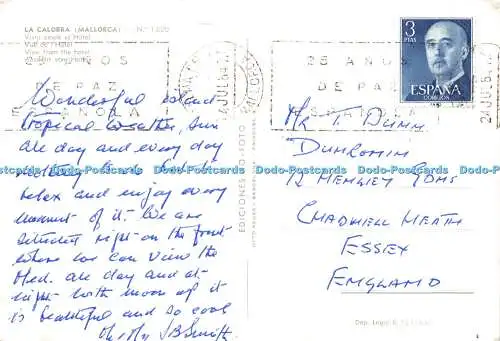 LA CALOBRA (MALLORCA)
Vista desde el Hotel
Vue de l'Hôtel
View from the hotel
25 AÑOS
DE PAZ
ESPAÑOLA
Wonderful island
tropical weather, sun
all day and every day
relax and enjoy every
moment of it. We are
situated right on the front
where we can view the
Med. all day and at
night with moon up it
is beautiful and so cool
Mr & Mrs J B Smith
EDICIONES
3
PTAS
ESPAÑA
CORREOS
25 AÑOS
DE PAZ
Mr T. Dunn.
Dunromin
12 Hemgley Gdns
Chadwell Heath
Essex
England
Dodo-Postcards Dodo-Postcards Dodo-Postcards Dodo-Postcards Dodo-Postcards Dodo-Postcards